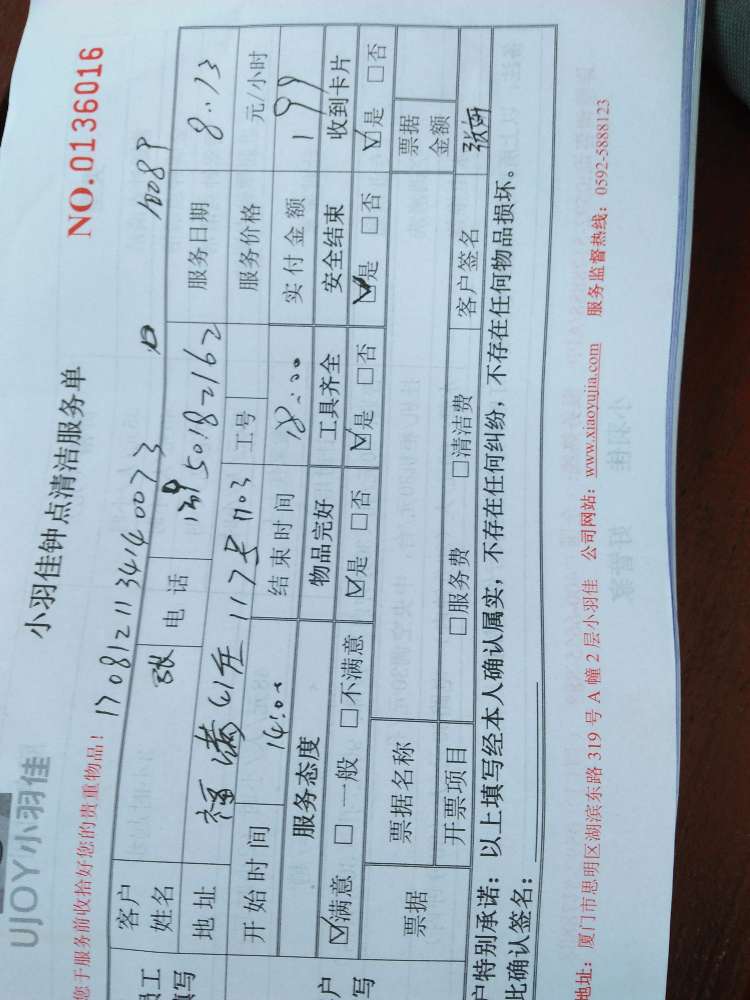 UJOY小羽佳
小羽佳钟点清洁服务单
NO.0136016
您于服务前收拾好您的贵重物品!
170812113414 0073
10089
员工
填写
客户
姓名
张
电 话
服务日期
8.13
地址
1175 1703
工号
服务价格
元/小时
开始时间
14:00
结束时间
18:00
实付金额
199
服务态度
物品完好
工具齐全
安全结束
收到卡片
☑满意 □ 一般 □不满意
☑是 □否
☑是 □否
☑是 □否
☑是 □否
户
写
票据
票据名称
票据
金额
开票项目
□服务费
□清洁费
客户签名
户特别承诺:以上填写经本人确认属实,不存在任何纠纷,不存在任何物品损坏。
此确认签名:
地址:厦门市思明区湖滨东路 319 号 A 幢 2 层小羽佳 公司网站:www.xiaoyujia.com 服务监督热线:0592-5888123